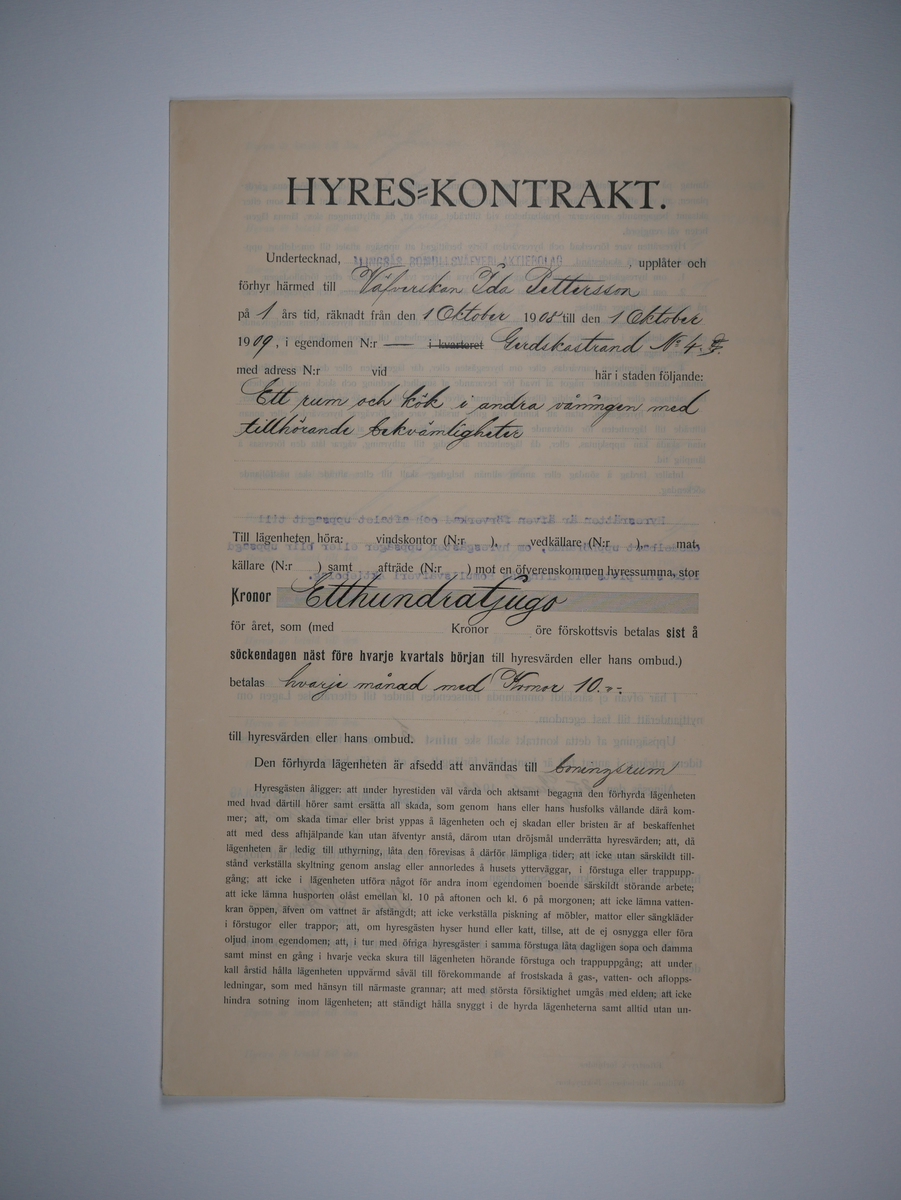 HYRES=KONTRAKT.
Undertecknad, BOMULLSVÄFVERI AKTIEBOLAG, upplåter och
förhyr härmed till Väfverskan Ida Pettersson
på 1 års tid, räknadt från den 1 Oktober 1908 till den 1 Oktober
1909, i egendomen N:r — i kvarteret Gerdskastrand No 4.
med adress N:r vid här i staden följande:
Ett rum och kök i andra våningen med
tillhörande bekvämligheter
Till lägenheten höra: vindskontor (N:r ), vedkällare (N:r ), mat-
källare (N:r ) samt afträde (N:r ) mot en öfverenskommen hyressumma, stor
Kronor Etthundratjugo
för året, som (med Kronor öre förskottsvis betalas sist å
söckendagen näst före hvarje kvartals början till hyresvärden eller hans ombud.)
betalas hvarje månad med Kronor 10.-
till hyresvärden eller hans ombud.
Den förhyrda lägenheten är afsedd att användas till boningsrum
Hyresgästen åligger: att under hyrestiden väl vårda och aktsamt begagna den förhyrda lägenheten
med hvad därtill hörer samt ersätta all skada, som genom hans eller hans husfolks vållande därå kom-
mer; att, om skada timar eller brist yppas å lägenheten och ej skadan eller bristen är af beskaffenhet
att med dess afhjälpande kan utan äfventyr anstå, därom utan dröjsmål underrätta hyresvärden; att, då
lägenheten är ledig till uthyrning, låta den förevisas å därför lämpliga tider; att icke utan särskildt till-
stånd verkställa skyltning genom anslag eller annorledes å husets ytterväggar, i förstuga eller trappupp-
gång; att icke i lägenheten utföra något för andra inom egendomen boende särskildt störande arbete;
att icke lämna husporten olåst emellan kl. 10 på aftonen och kl. 6 på morgonen; att icke lämna vatten-
kran öppen, äfven om vattnet är afstängdt; att icke verkställa piskning af möbler, mattor eller sängkläder
i förstugor eller trappor; att, om hyresgästen hyser hund eller katt, tillse, att de ej osnygga eller föra
oljud inom egendomen; att, i tur med öfriga hyresgäster i samma förstuga låta dagligen sopa och damma
samt minst en gång i hvarje vecka skura till lägenheten hörande förstuga och trappuppgång; att under
kall årstid hålla lägenheten uppvärmd såväl till förekommande af frostskada å gas-, vatten- och aflopps-
ledningar, som med hänsyn till närmaste grannar; att med största försiktighet umgås med elden; att icke
hindra sotning inom lägenheten; att ständigt hålla snyggt i de hyrda lägenheterna samt alltid utan un-